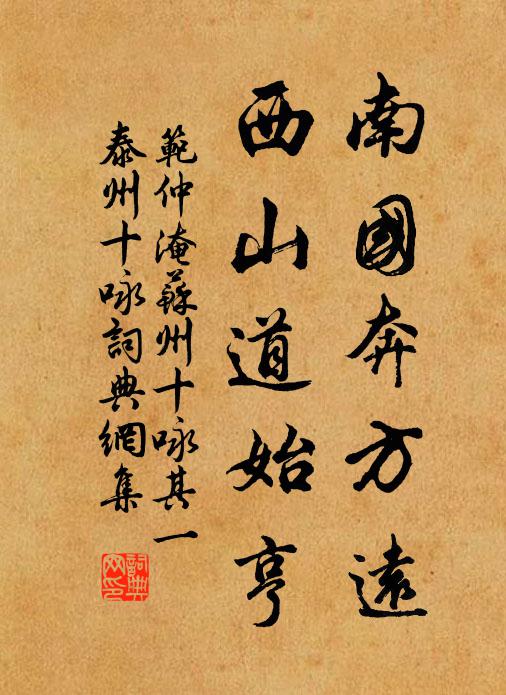 南國奔方遠
西山道始亨
範仲淹蘇州十咏其一
泰州十咏詞典網集
詞典网印